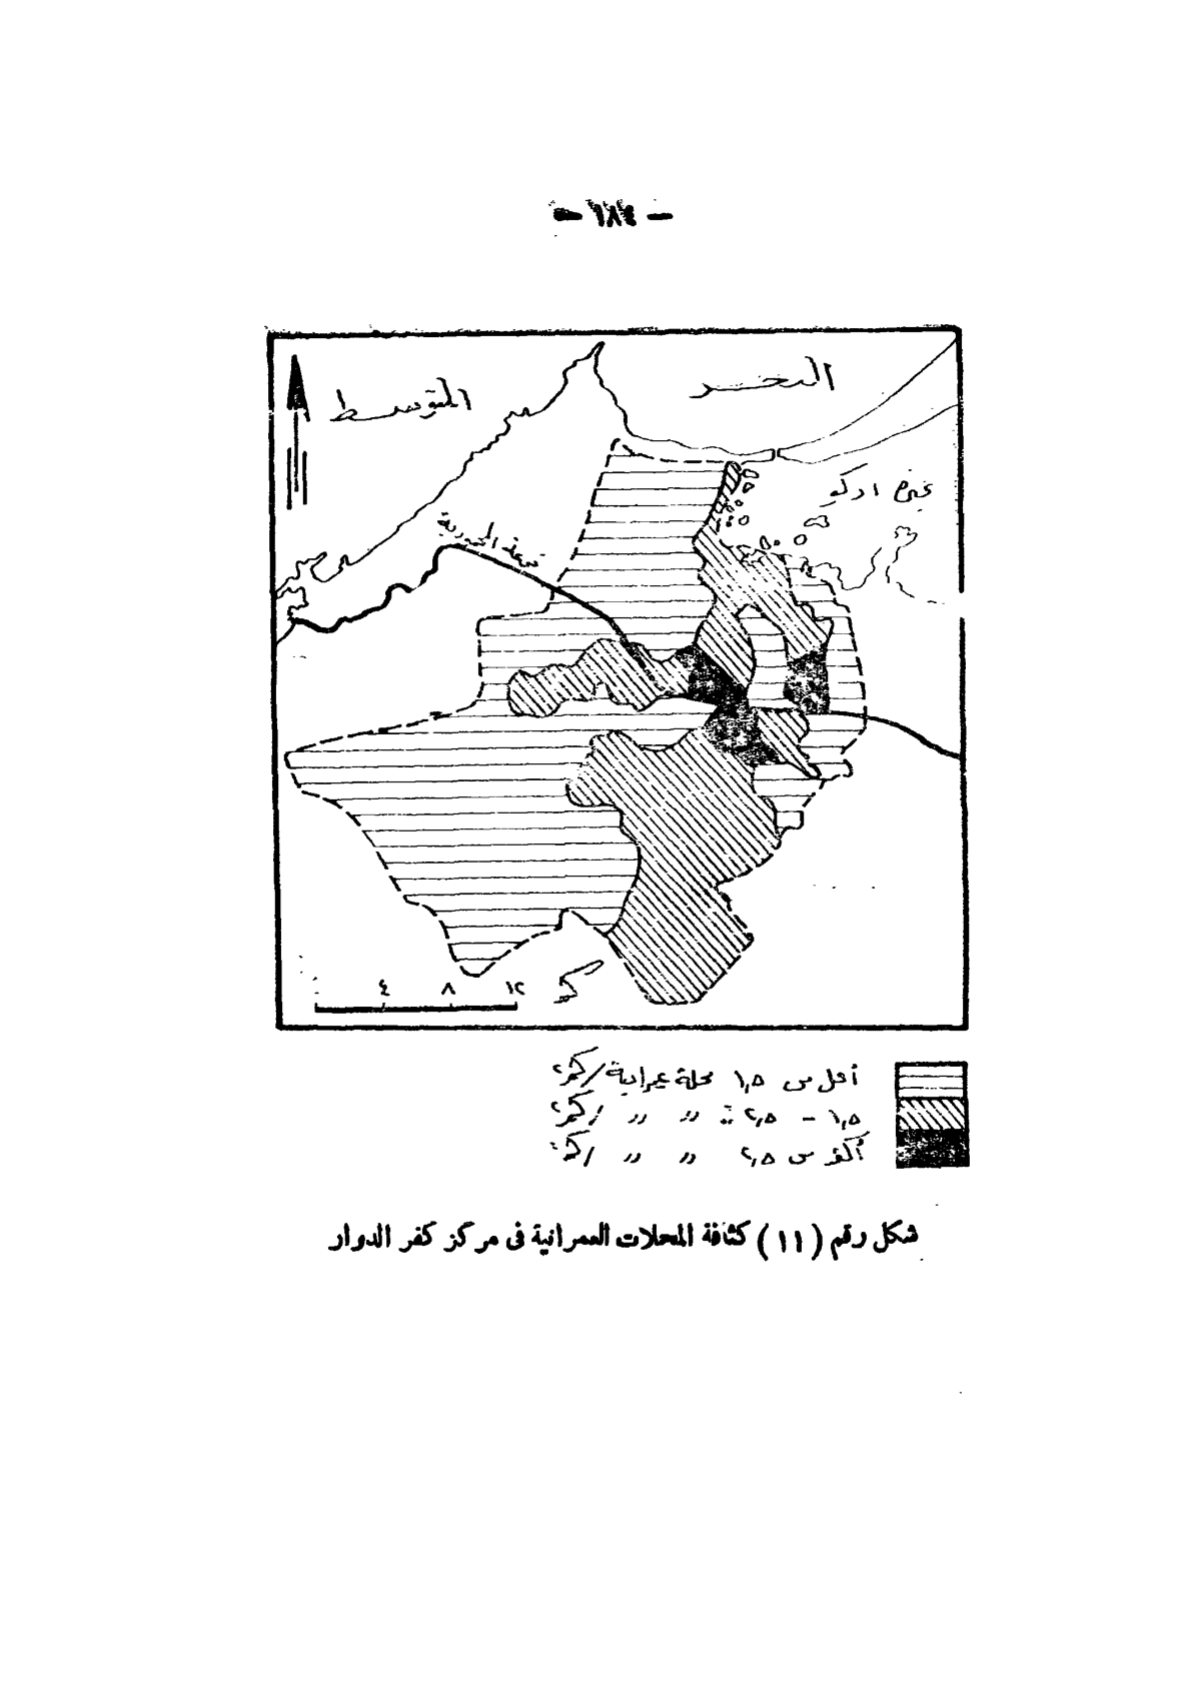 — ١٨٤ —
البحر المتوسط
بحيرة ادكو
ترعة المحمودية
٤ ٨ ١٢ كم
أقل من ١,٥ محلة عمرانية /كم٢
١,٥ – ٢,٥ " " /كم٢
أكثر من ٢,٥ " " /كم٢
شكل رقم (١١) كثافة المحلات العمرانية فى مركز كفر الدوار